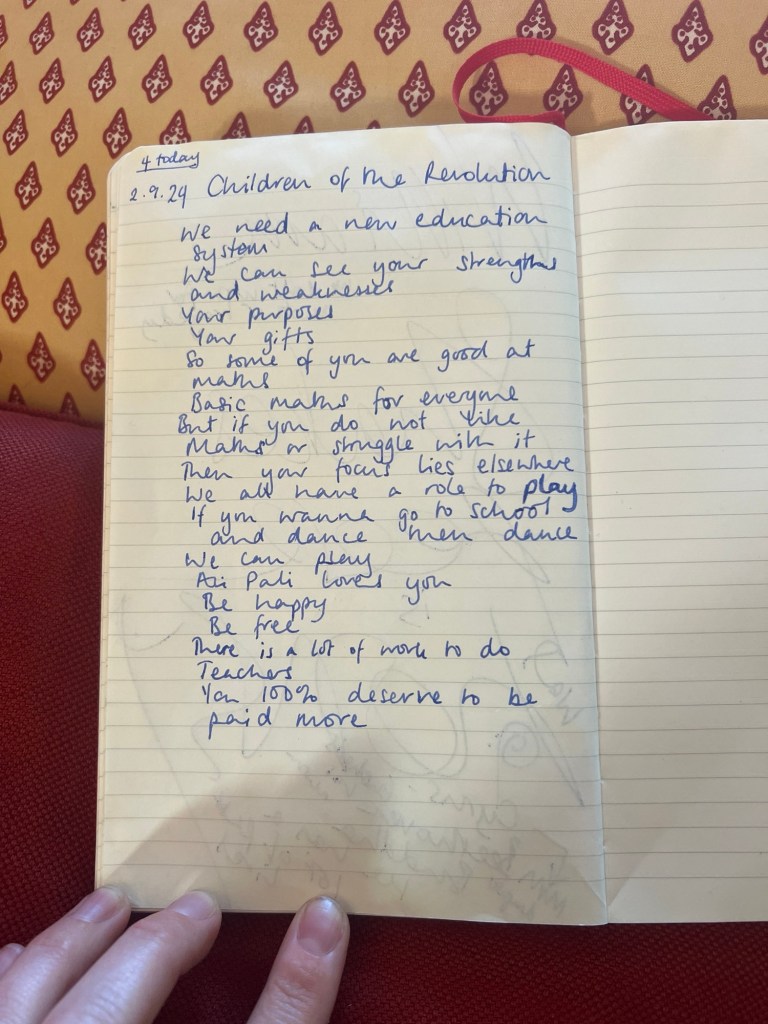 4 today
2.9.24 Children of the Revolution
We need a new education
system
We can see your strengths
and weaknesses
Your purposes
Your gifts
So some of you are good at
maths
Basic maths for everyone
But if you do not like
Maths or struggle with it
Then your focus lies elsewhere
We all have a role to play
If you wanna go to school
and dance then dance
We can play
Pali loves you
Be happy
Be free
There is a lot of work to do
Teachers
You 100% deserve to be
paid more